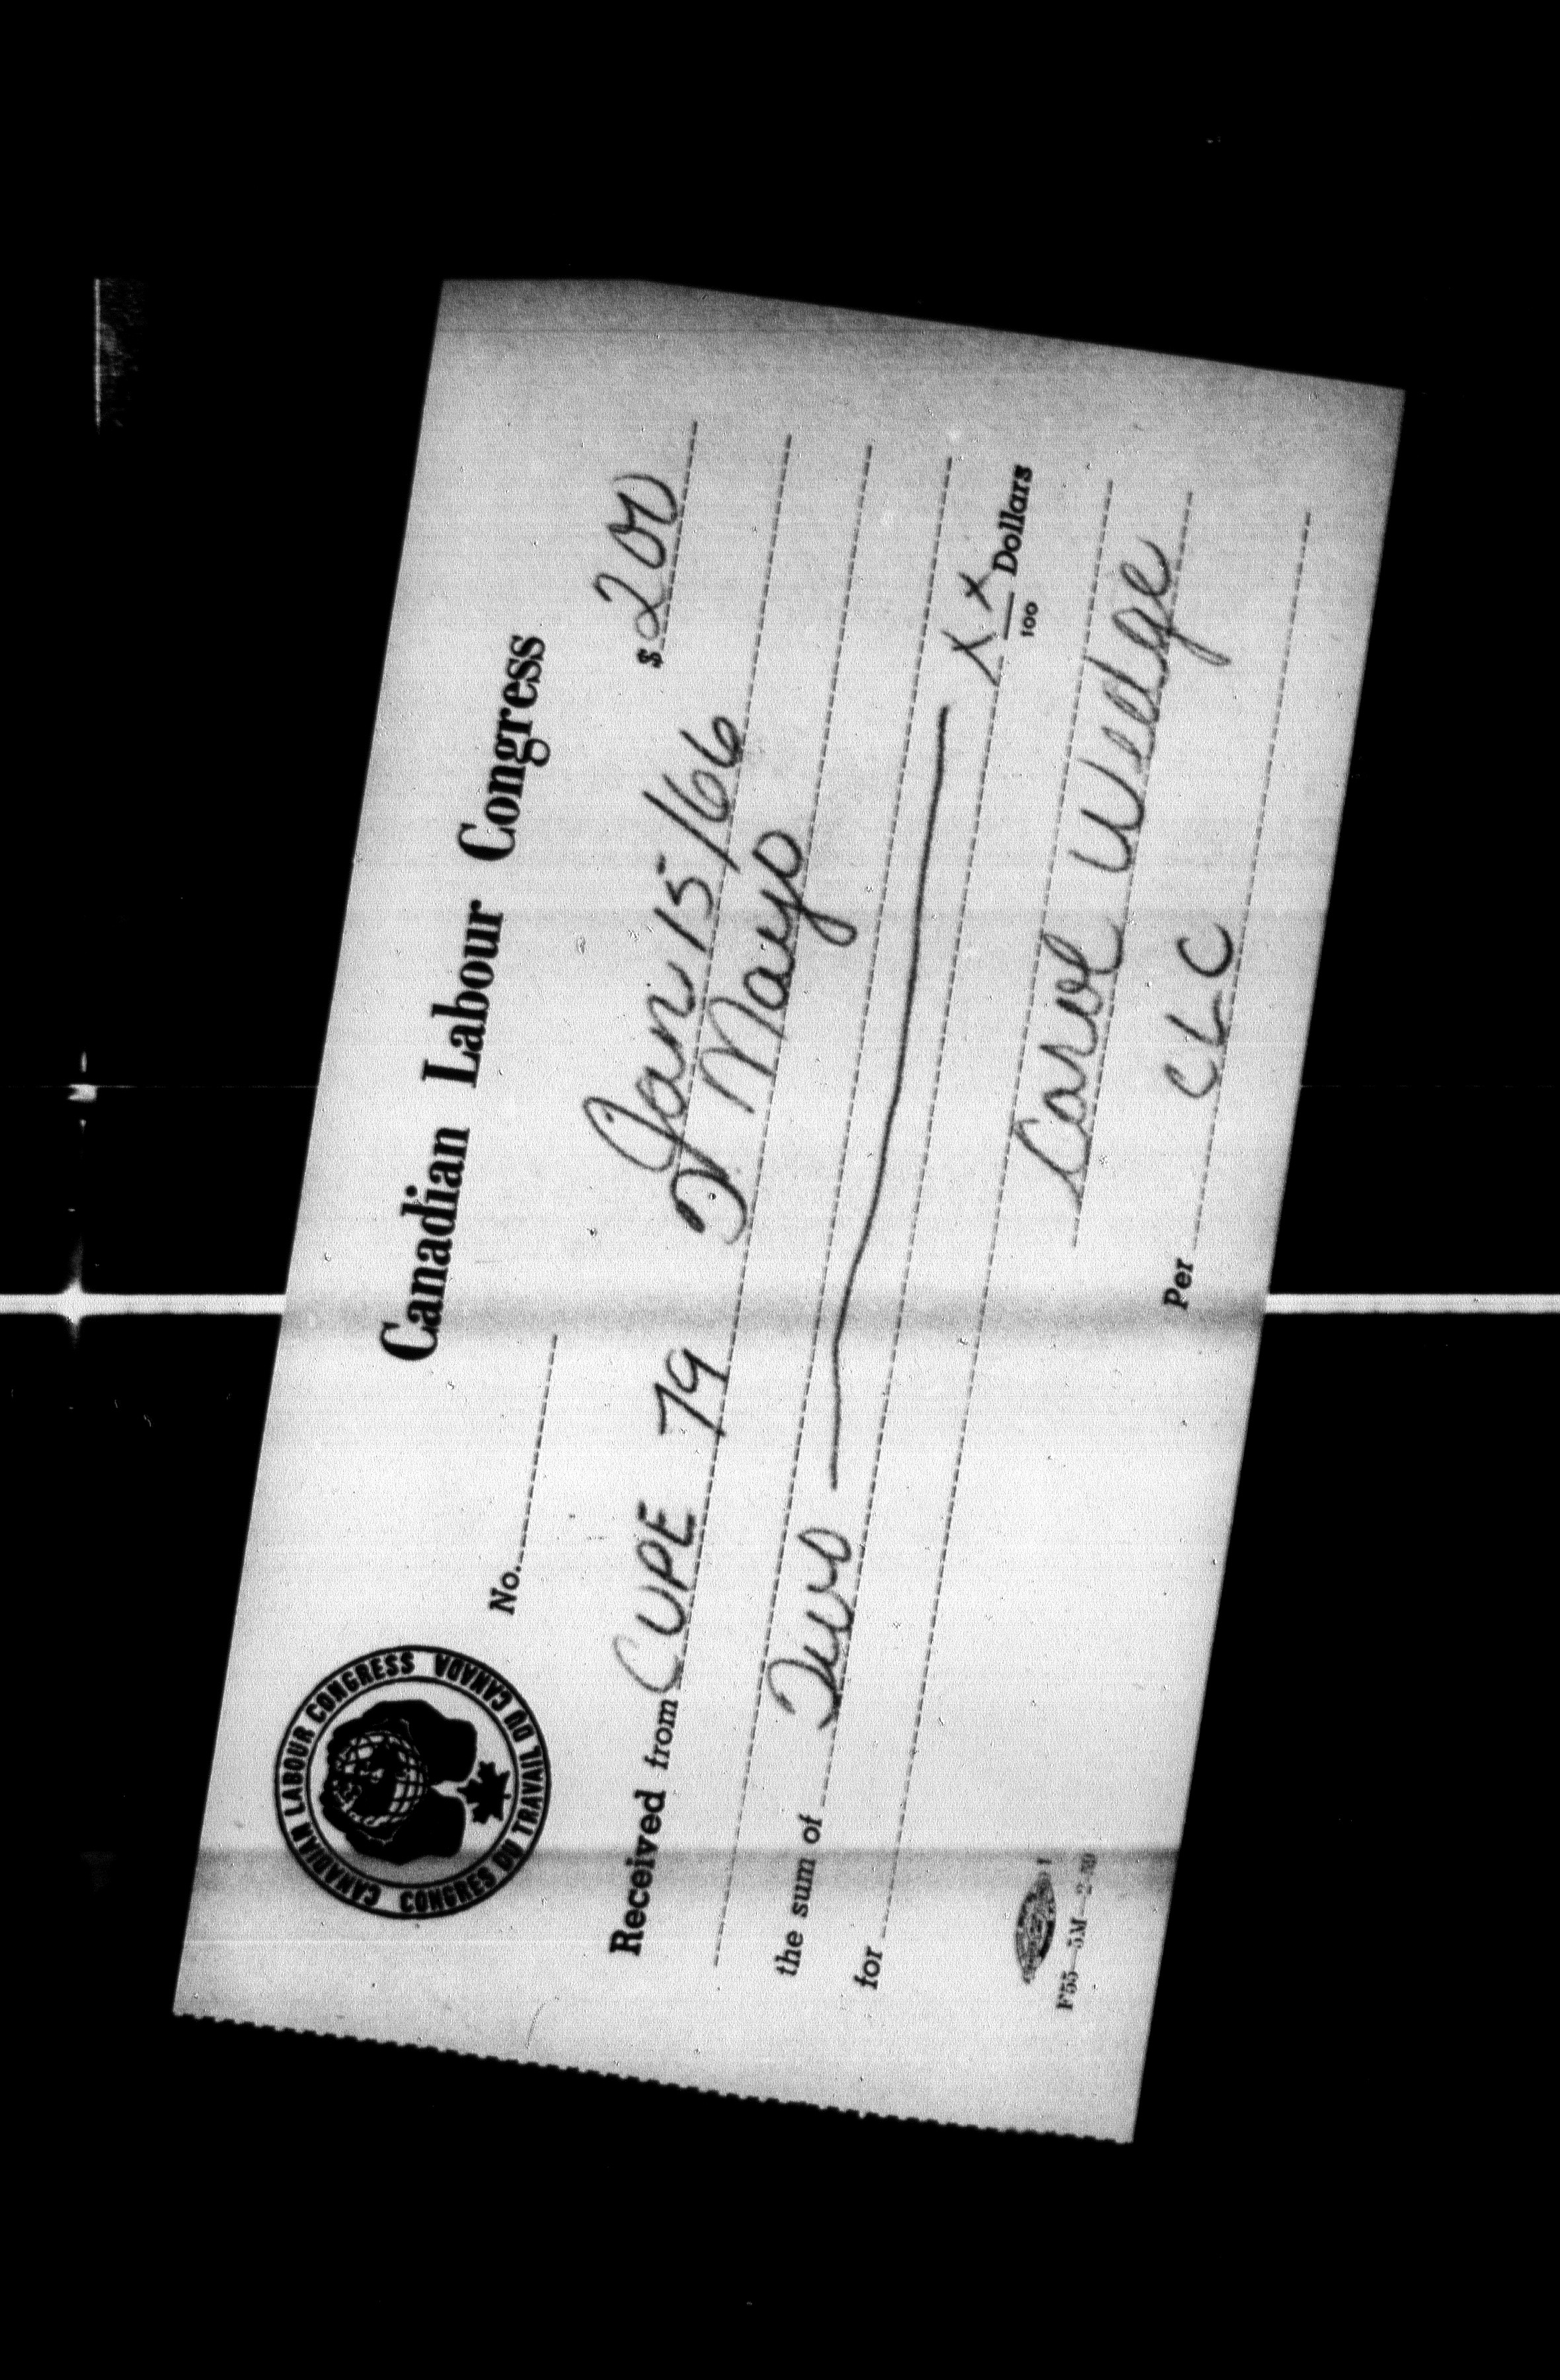 Canadian Labour Congress
CANADIAN LABOUR CONGRESS
CONGRES DU TRAVAIL DU CANADA
No.
Jan 15/66 $ 200
Received from CUPE 79 D Mayo
the sum of Two
for
XX/100 Dollars
Carol Wedge
Per CLC
F55—5M—2